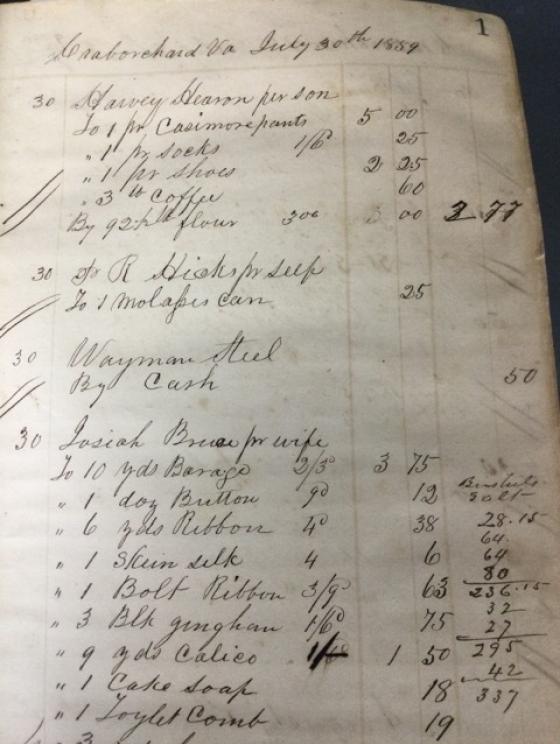 1
Craborchard Va July 30th 1859
30 Harvey Hearon per son
To 1 pr Casimore pants 5 00
" 1 pr socks 1/6 25
" 1 pr shoes 2 25
" 3 lb Coffee 60
By 92½ lb flour 300 3 00 2 77
30 R Hicks pr self
To 1 Molasses can 25
30 Wayman Steel
By Cash 50
30 Josiah Bruce pr wife
To 10 yds Barage 2/3d 3 75
" 1 doz Button 9d 12
" 6 yds Ribbon 4d 38
" 1 Skein silk 4 6
" 1 Bolt Ribbon 3/9d 63
" 3 Blk gingham 1/6d 75
" 9 yds Calico 1 50
" 1 Cake soap 18
" 1 Toylet Comb 19
" 3
Bushels
Salt
28.15
64
64
80
236.15
32
27
295
42
337